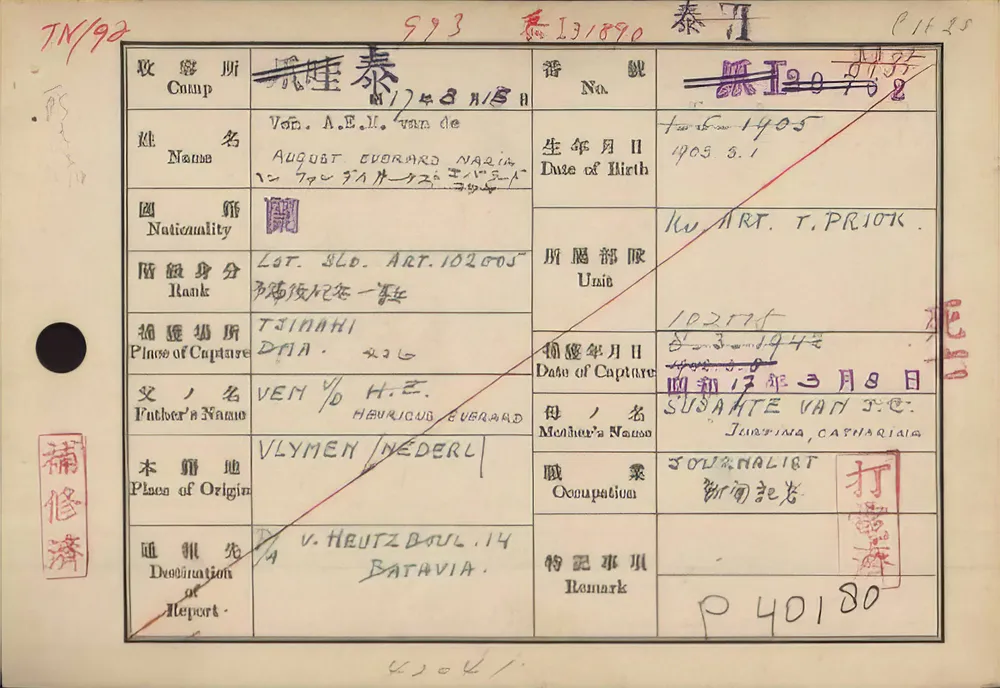 TN/92
993
泰 I31890
泰 I
收容所
Camp
爪哇 泰
昭 17年8月15日
番號
No.
爪 I 20702
姓名
Name
Ven. A.E.M. van de
AUGUST EVERARD MARIA
生年月日
Date of Birth
1-5-1905
1905.5.1
國籍
Nationality
蘭
所屬部隊
Unit
Kv. ART. T. PRIOK.
102005
階級身分
Rank
Lst. SLD. ART. 102005
捕獲場所
Place of Capture
TJIMAHI
DMA.
捕獲年月日
Date of Capture
8-3-1942
1942.3.8
昭和17年3月8日
父ノ名
Father's Name
VEN V/D H.E.
EVERARD
母ノ名
Mother's Name
SUSANTE VAN J.C.
JUSTINA, CATHARINA
本籍地
Place of Origin
VLYMEN /NEDERL
職業
Occupation
JOURNALIST
新聞記者
通報先
Destination of Report.
D/A V. HEUTZ BOUL. 14
BATAVIA.
特記事項
Remark
P 40180
補修濟
打電濟
死亡